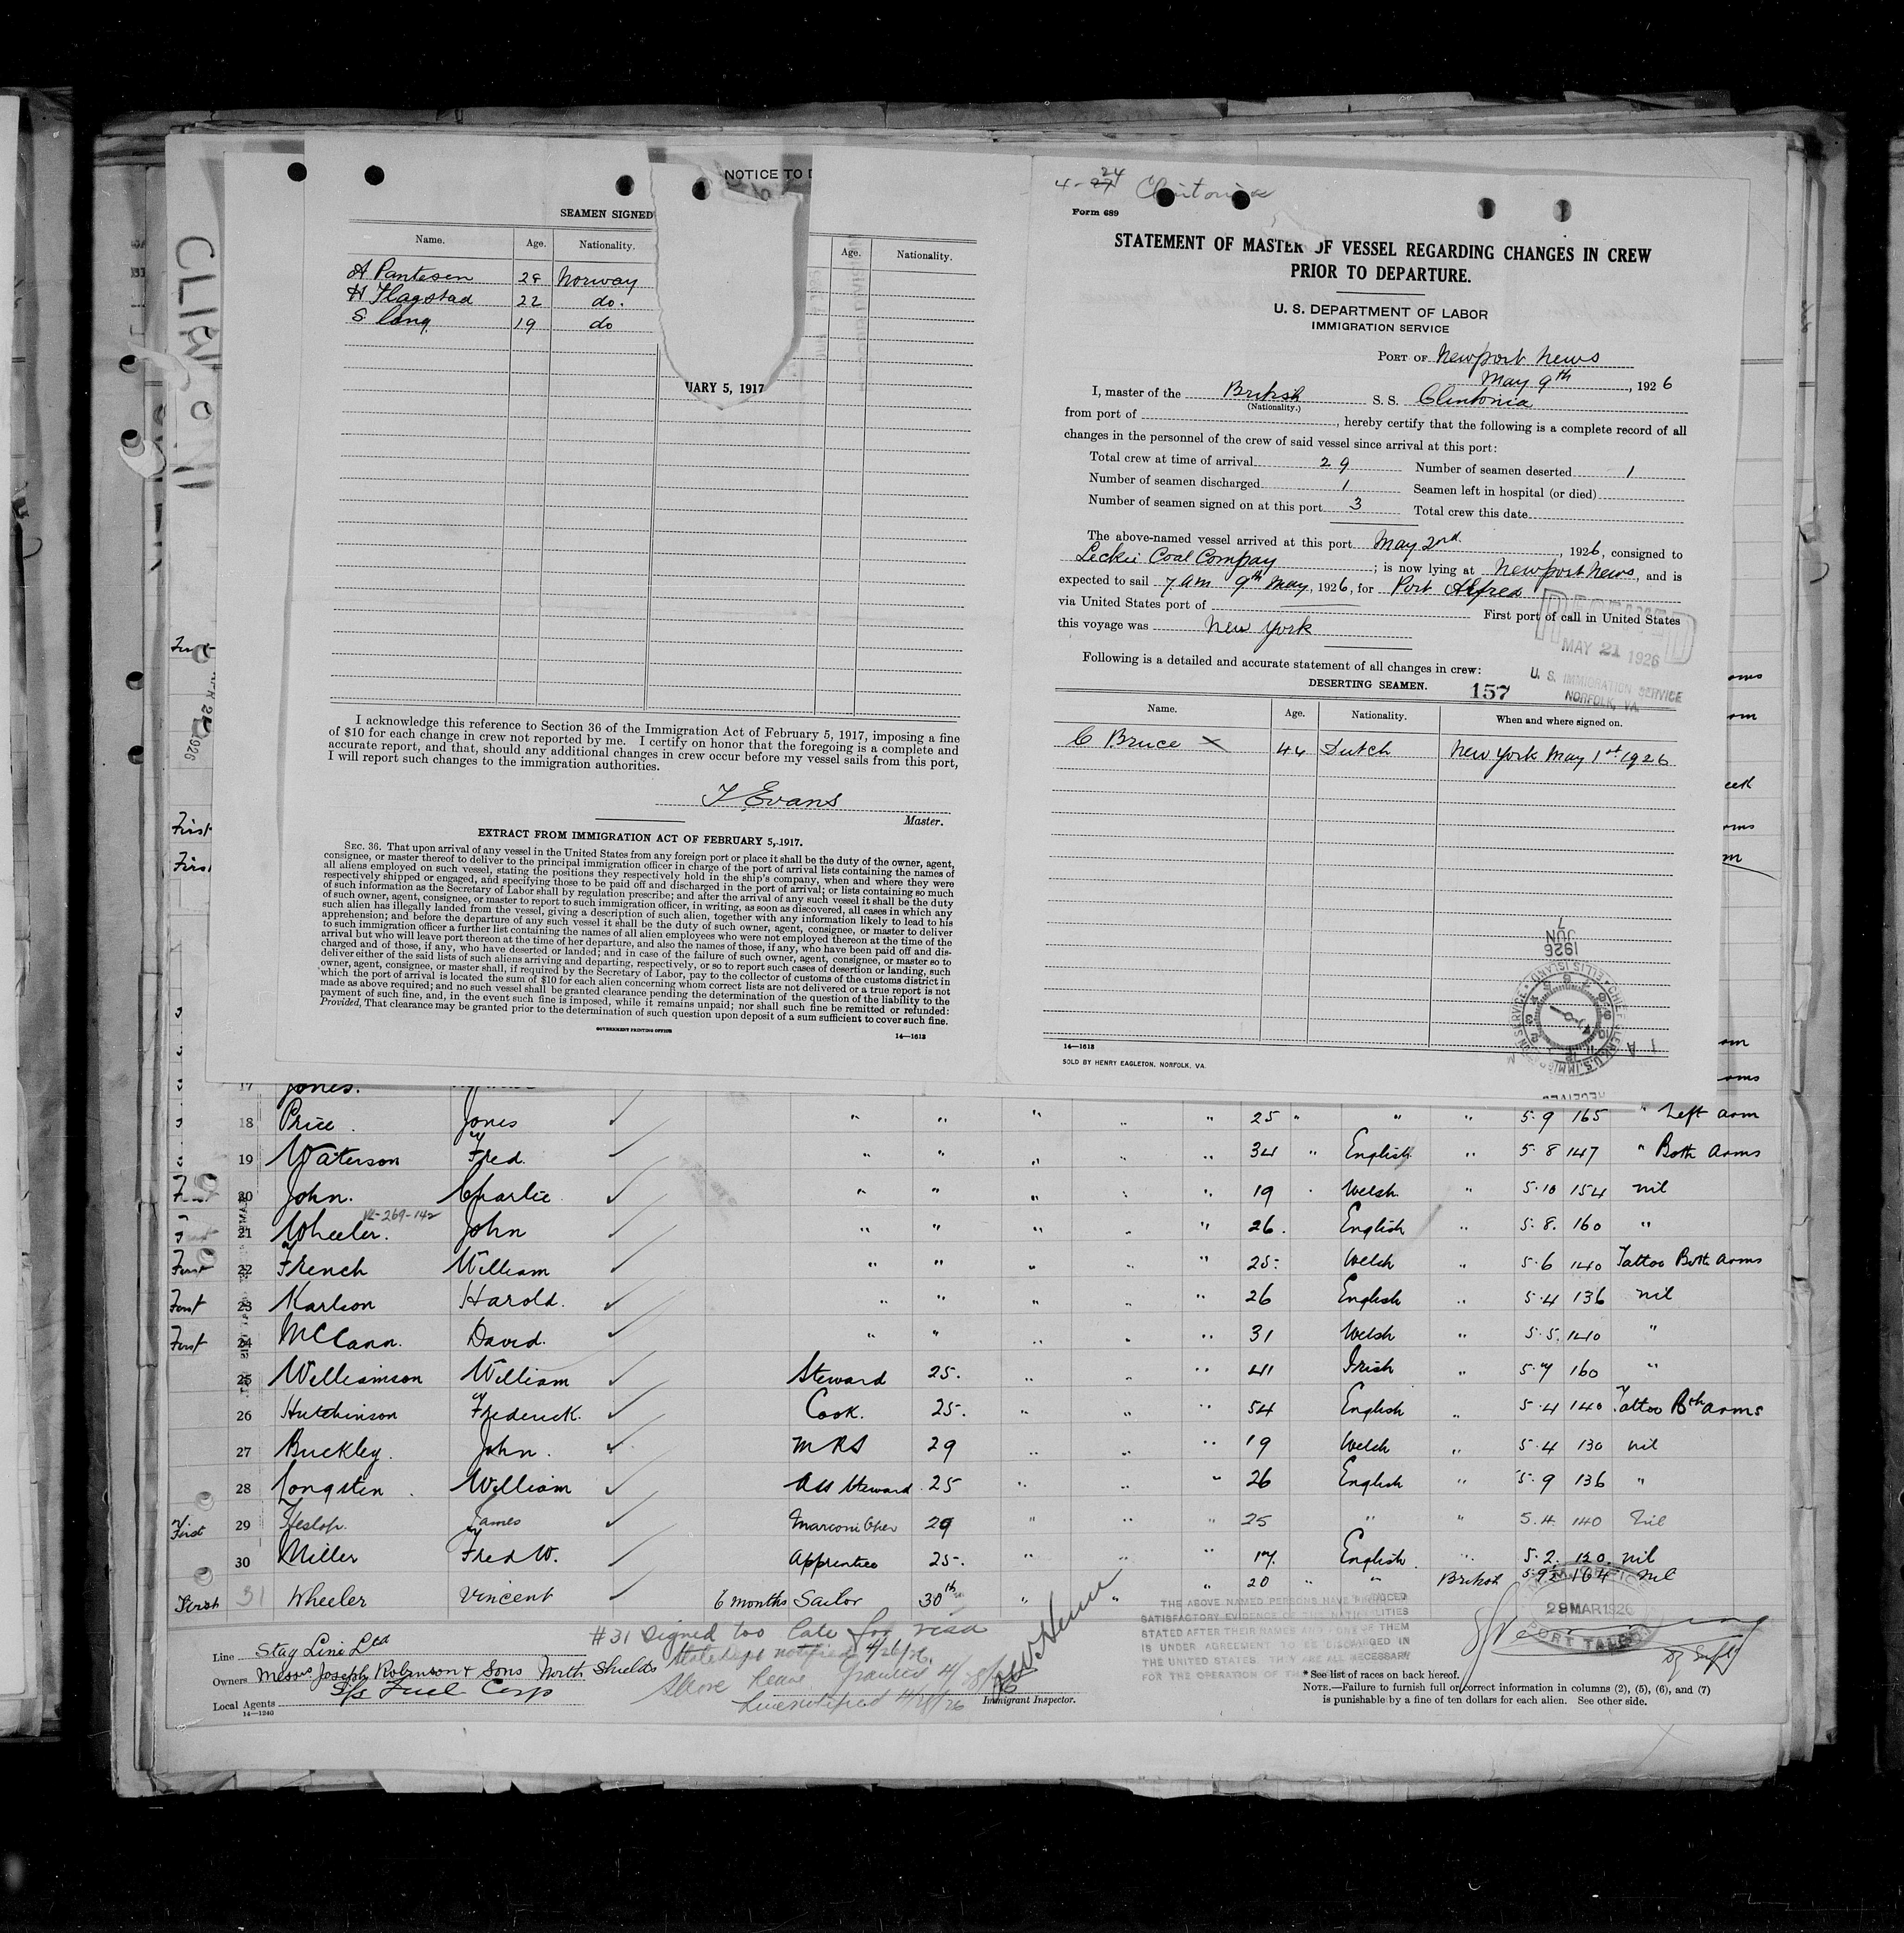 NOTICE TO
SEAMEN SIGNED
Name. Age. Nationality. Age. Nationality.
A. Pantesen 28 Norway
H Flagstad 22 do.
S. Lang 19 do
UARY 5, 1917
I acknowledge this reference to Section 36 of the Immigration Act of February 5, 1917, imposing a fine
of $10 for each change in crew not reported by me. I certify on honor that the foregoing is a complete and
accurate report, and that, should any additional changes in crew occur before my vessel sails from this port,
I will report such changes to the immigration authorities.
T Evans
Master.
EXTRACT FROM IMMIGRATION ACT OF FEBRUARY 5, 1917.
SEC. 36. That upon arrival of any vessel in the United States from any foreign port or place it shall be the duty of the owner, agent,
consignee, or master thereof to deliver to the principal immigration officer in charge of the port of arrival lists containing the names of
all aliens employed on such vessel, stating the positions they respectively hold in the ship's company, when and where they were
respectively shipped or engaged, and specifying those to be paid off and discharged in the port of arrival; or lists containing so much
of such information as the Secretary of Labor shall by regulation prescribe; and after the arrival of any such vessel it shall be the duty
of such owner, agent, consignee, or master to report to such immigration officer, in writing, as soon as discovered, all cases in which any
such alien has illegally landed from the vessel, giving a description of such alien, together with any information likely to lead to his
apprehension; and before the departure of any such vessel it shall be the duty of such owner, agent, consignee, or master to deliver
to such immigration officer a further list containing the names of all alien employees who were not employed thereon at the time of the
arrival but who will leave port thereon at the time of her departure, and also the names of those, if any, who have been paid off and dis-
charged and of those, if any, who have deserted or landed; and in case of the failure of such owner, agent, consignee, or master so to
deliver either of the said lists of such aliens arriving and departing, respectively, or so to report such cases of desertion or landing, such
owner, agent, consignee, or master shall, if required by the Secretary of Labor, pay to the collector of customs of the customs district in
which the port of arrival is located the sum of $10 for each alien concerning whom correct lists are not delivered or a true report is not
made as above required; and no such vessel shall be granted clearance pending the determination of the question of the liability to the
payment of such fine, and, in the event such fine is imposed, while it remains unpaid; nor shall such fine be remitted or refunded:
Provided, That clearance may be granted prior to the determination of such question upon deposit of a sum sufficient to cover such fine.
GOVERNMENT PRINTING OFFICE
14—1618
4-27 24 Clintonia
Form 689
STATEMENT OF MASTER OF VESSEL REGARDING CHANGES IN CREW
PRIOR TO DEPARTURE.
U. S. DEPARTMENT OF LABOR
IMMIGRATION SERVICE
PORT OF Newport News
May 9th, 1926
I, master of the British S. S. Clintonia
(Nationality.)
from port of , hereby certify that the following is a complete record of all
changes in the personnel of the crew of said vessel since arrival at this port:
Total crew at time of arrival 29 Number of seamen deserted 1
Number of seamen discharged 1 Seamen left in hospital (or died)
Number of seamen signed on at this port 3 Total crew this date
The above-named vessel arrived at this port May 2nd, 1926, consigned to
Leckie Coal Compay; is now lying at Newport News, and is
expected to sail 7 am 9th May, 1926, for Port Alfred
via United States port of First port of call in United States
this voyage was New York
MAY 21 1926
U. S. IMMIGRATION SERVICE
NORFOLK, VA.
Following is a detailed and accurate statement of all changes in crew:
DESERTING SEAMEN. 157
Name. Age. Nationality. When and where signed on.
C Bruce x 44 Dutch New York May 1st 1926
1926
JUN
7
14—1618
SOLD BY HENRY EAGLETON, NORFOLK, VA.
17 Jones.
18 Price. Jones ✓ " " " " " 25 " " " 5·9 165 " Left arm
19 Waterson Fred. ✓ " " " " " 34 " English " 5·8 147 " Both arms
20 John. Charlie. ✓ " " " " " 19 " Welsh " 5·10 154 nil
21 Wheeler. John ✓ " " " " " 26. English " 5·8. 160 "
First 22 French William ✓ " " " " " 25. Welch " 5·6 140 Tattoo Both arms
First 23 Karlson Harold. ✓ " " " " " 26 English " 5·4 136 nil
First 24 McCann. David. ✓ " " " " " 31 Welsh " 5·5. 140 "
25 Williamson William ✓ Steward 25. " " " 41 Irish " 5·7 160 "
26 Hutchinson Frederick. ✓ Cook. 25. " " " 54 English " 5·4 140 Tattoo Bth arms
27 Buckley. John. ✓ M R S 29 " " " 19 Welch " 5·4 130 nil
28 Longsten. William ✓ Ass Steward 25 " " " 26 English " 5·9 136 "
First 29 Heslop. James Marconi Oper 29 " " " 25 " " 5.4. 140 Nil
30 Miller Fred W. ✓ Apprentice 25. " " " 17. English. " 5·2. 120. nil
First 31 Wheeler Vincent ✓ 6 months Sailor 30th " " " 20 " " British 5·9½ 164 Nil
#31 signed too late for visa
State Dept notified 4/26/26.
Shore leave granted 4/28/26
Line notified 4/28/26
Line Stag Line Ltd
Owners Messrs Joseph Robinson & Sons North Shields
Local Agents S/s Fuel Corp
14—1240
Immigrant Inspector.
THE ABOVE NAMED PERSONS HAVE PRODUCED
SATISFACTORY EVIDENCE OF THE NATIONALITIES
STATED AFTER THEIR NAMES AND NONE OF THEM
IS UNDER AGREEMENT TO BE DISCHARGED IN
THE UNITED STATES. THEY ARE ALL NECESSARY
FOR THE OPERATION OF TH
29 MAR 1926
PORT TALBOT
* See list of races on back hereof.
NOTE.—Failure to furnish full or correct information in columns (2), (5), (6), and (7)
is punishable by a fine of ten dollars for each alien. See other side.